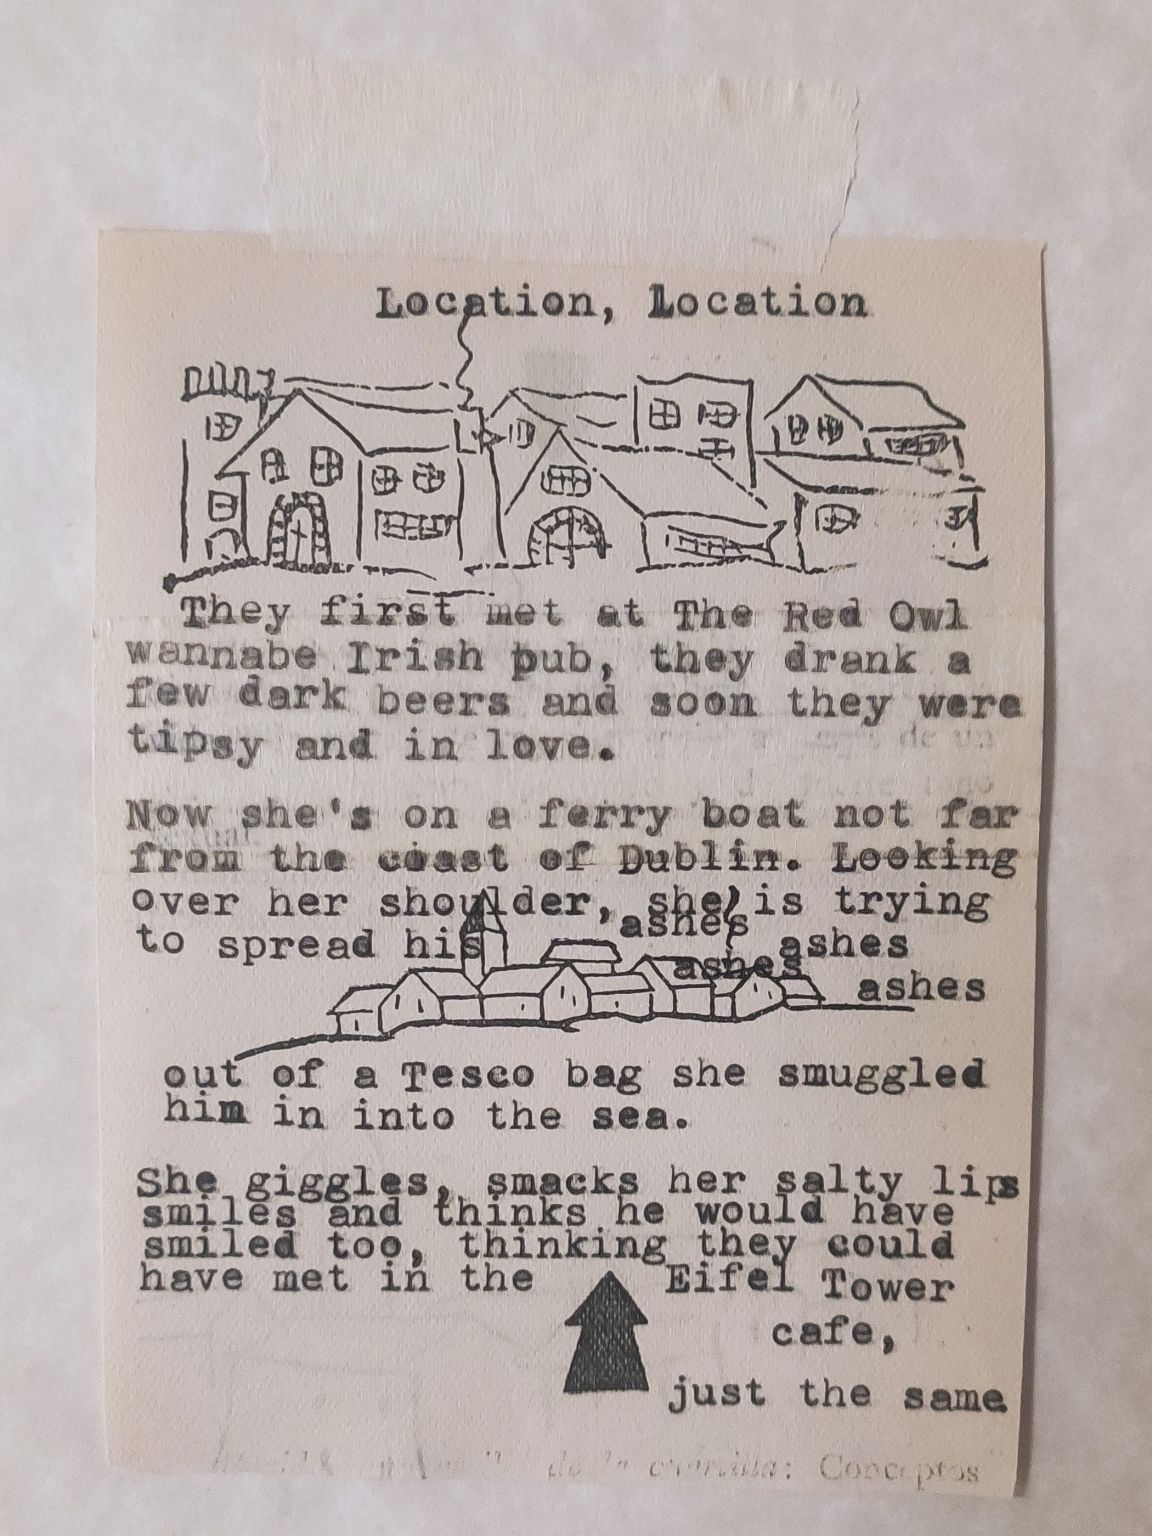 Location, Location
They first met at The Red Owl
wannabe Irish pub, they drank a
few dark beers and soon they were
tipsy and in love.
Now she's on a ferry boat not far
from the coast of Dublin. Looking
over her shoulder, she is trying
to spread his ashes ashes
ashes
ashes
out of a Tesco bag she smuggled
him in into the sea.
She giggles, smacks her salty lips
smiles and thinks he would have
smiled too, thinking they could
have met in the Eifel Tower
cafe,
just the same
Conceptos